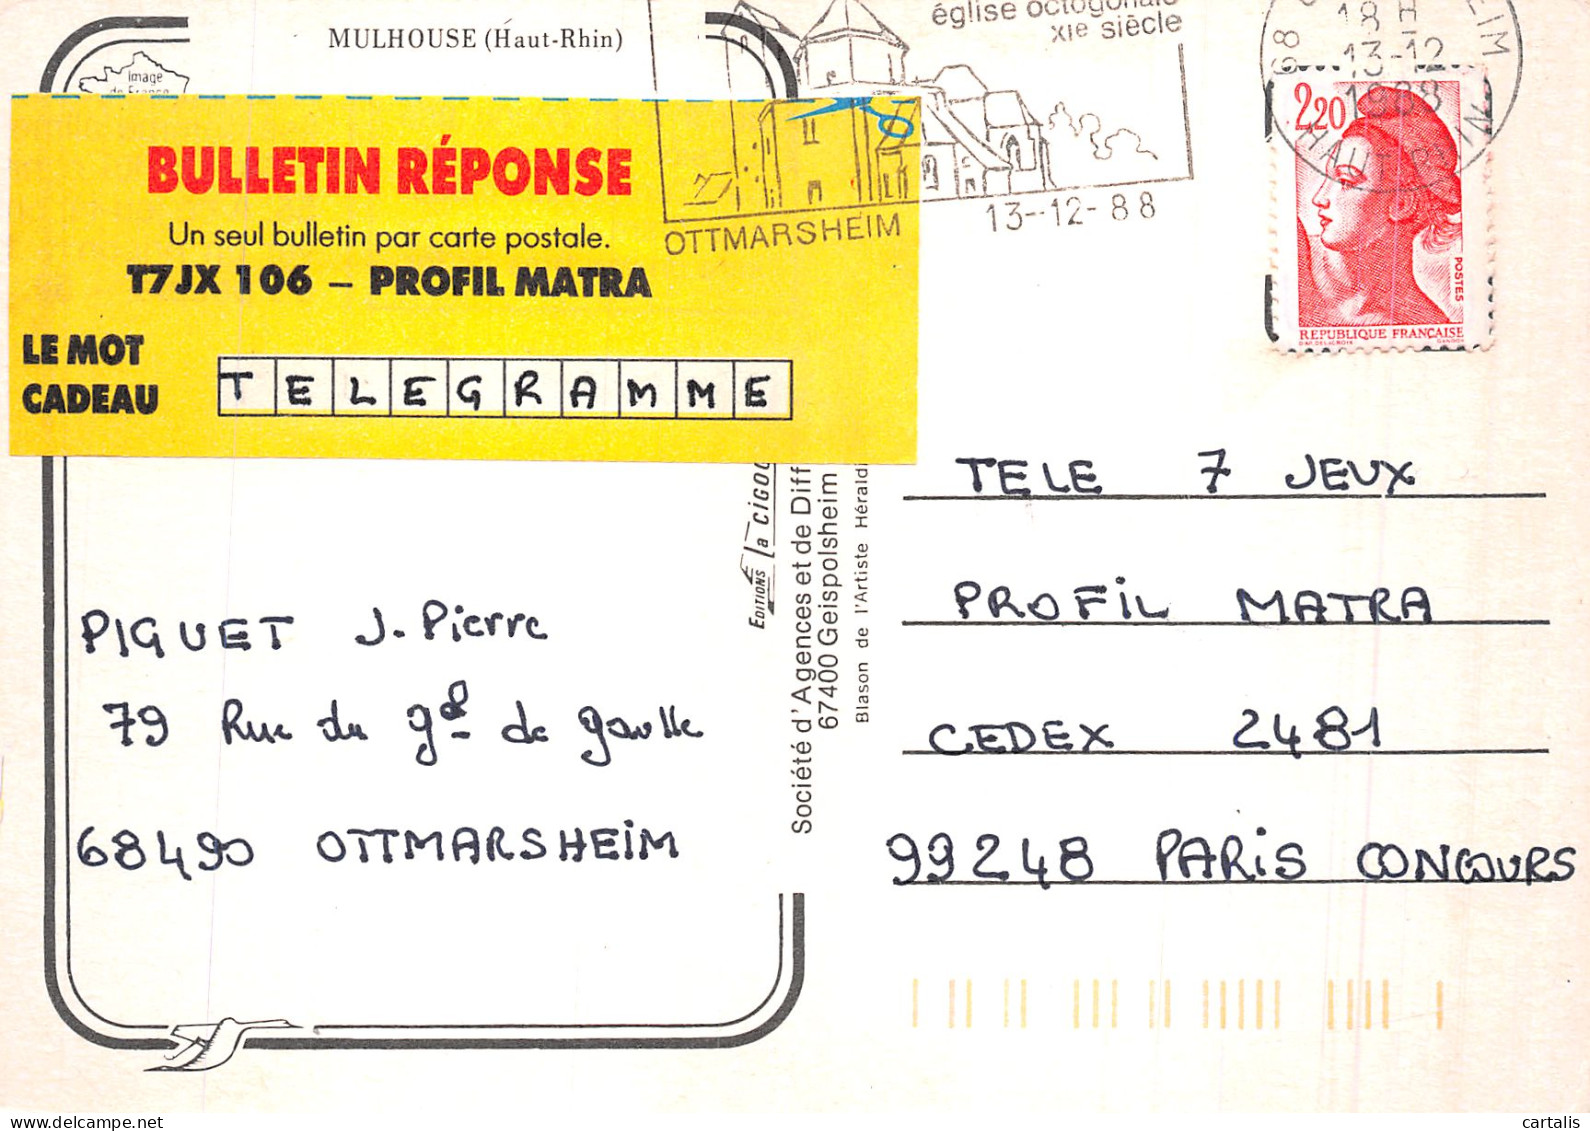 MULHOUSE (Haut-Rhin)
Image
de France
BULLETIN RÉPONSE
Un seul bulletin par carte postale.
T7JX 106 – PROFIL MATRA
LE MOT
CADEAU
TELEGRAMME
église octogonale
XIe siècle
OTTMARSHEIM
13-12-88
18 H
13-12
1988
HAUT-RHIN
2,20
POSTES
REPUBLIQUE FRANÇAISE
PIGUET J. Pierre
79 Rue du gal de gaulle
68490 OTTMARSHEIM
EDITIONS la CIGO
Société d'Agences et de Diff
67400 Geispolsheim
Blason de l'Artiste Héraldi
TELE 7 JEUX
PROFIL MATRA
CEDEX 2481
99248 PARIS CONCOURS
cartalis.com